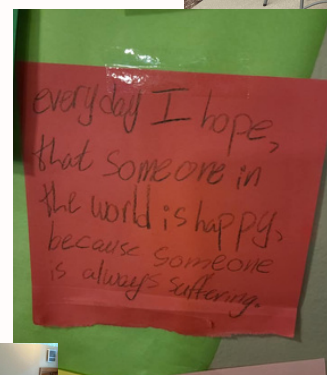 everyday I hope,
that someone in
the world is happy,
because someone
is always suffering.